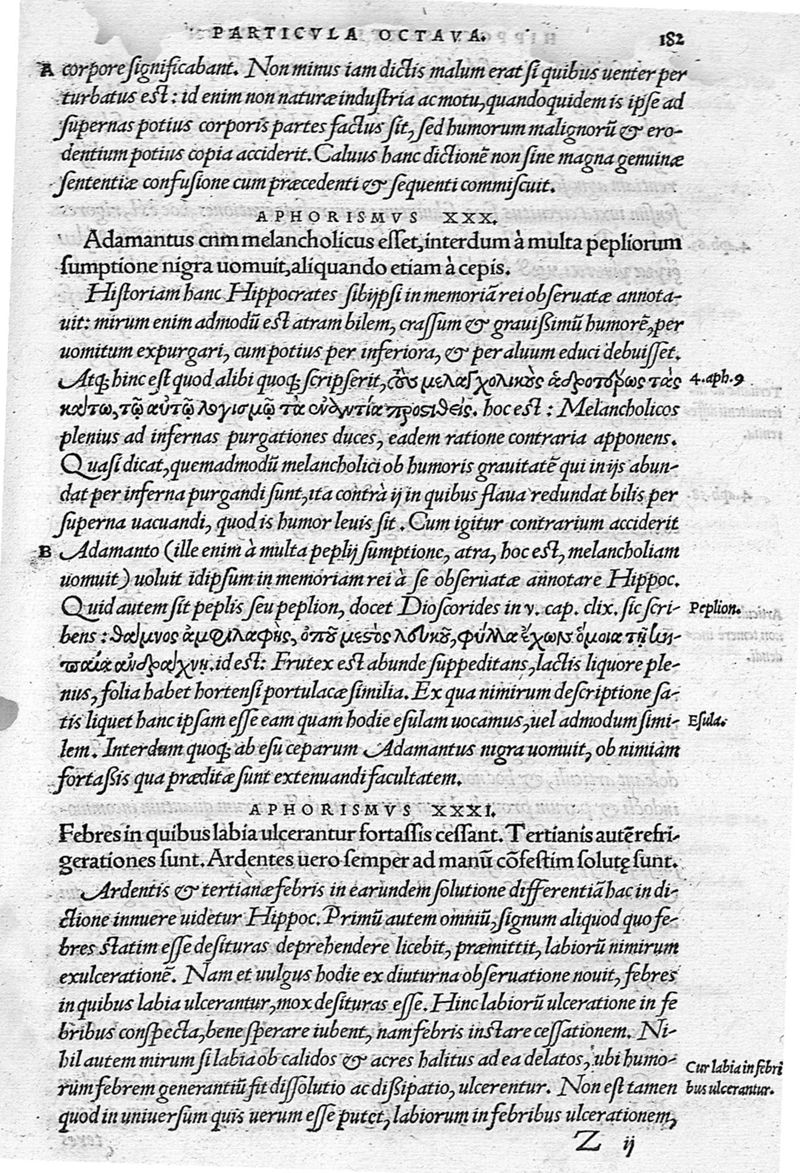 PARTICVLA OCTAVA. 182
A corpore significabant. Non minus iam dictis malum erat si quibus uenter per
turbatus est: id enim non naturæ industria ac motu, quandoquidem is ipse ad
supernas potius corporis partes factus sit, sed humorum malignorũ & ero-
dentium potius copia acciderit. Caluus hanc dictionẽ non sine magna genuinæ
sententiæ confusione cum præcedenti & sequenti commiscuit.
APHORISMVS XXX.
Adamantus cum melancholicus esset, interdum à multa pepliorum
sumptione nigra uomuit, aliquando etiam à cepis.
Historiam hanc Hippocrates sibijpsi in memoriã rei obseruatæ annota-
uit: mirum enim admodũ est atram bilem, crassum & grauißimũ humorẽ, per
uomitum expurgari, cum potius per inferiora, & per aluum educi debuisset.
Atq; hinc est quod alibi quoq; scripserit, τοὺς μελαγχολικοὺς ἁδροτέρως τὰς 4. aph. 9
κάτω, τῷ αὐτῷ λογισμῷ τὰ ἐναντία προστιθείς. hoc est: Melancholicos
plenius ad infernas purgationes duces, eadem ratione contraria apponens.
Quasi dicat, quemadmodũ melancholici ob humoris grauitatẽ qui in ijs abun-
dat per inferna purgandi sunt, ita contrà ij in quibus flaua redundat bilis per
superna uacuandi, quod is humor leuis sit. Cum igitur contrarium acciderit
B Adamanto (ille enim à multa peplij sumptione, atra, hoc est, melancholiam
uomuit) uoluit idipsum in memoriam rei à se obseruatæ annotare Hippoc.
Quid autem sit peplis seu peplion, docet Dioscorides in v. cap. clix. sic scri- Peplion.
bens: θάμνος ἀμφιλαφὴς, ὀποῦ μεστὸς λευκοῦ, φύλλα ἔχων ὅμοια τῇ κη-
παίᾳ ἀνδράχνῃ. id est: Frutex est abunde suppeditans, lactis liquore ple-
nus, folia habet hortensi portulacæ similia. Ex qua nimirum descriptione sa-
tis liquet hanc ipsam esse eam quam hodie esulam uocamus, uel admodum simi- Esula.
lem. Interdum quoq; ab esu ceparum Adamantus nigra uomuit, ob nimiam
fortaßis qua præditæ sunt extenuandi facultatem.
APHORISMVS XXXI.
Febres in quibus labia ulcerantur fortassis cessant. Tertianis autẽ refri-
gerationes sunt. Ardentes uero semper ad manũ cõfestim solutę sunt.
Ardentis & tertianæ febris in earundem solutione differentiã hac in di-
ctione innuere uidetur Hippoc. Primũ autem omniũ, signum aliquod quo fe-
bres statim esse desituras deprehendere licebit, præmittit, labiorũ nimirum
exulcerationẽ. Nam et uulgus hodie ex diuturna obseruatione nouit, febres
in quibus labia ulcerantur, mox desituras esse. Hinc labiorũ ulceratione in fe
bribus conspecta, bene sperare iubent, nam febris instare cessationem. Ni-
hil autem mirum si labia ob calidos & acres halitus ad ea delatos, ubi humo- Cur labia in febri
rum febrem generantiũ fit dissolutio ac dißipatio, ulcerentur. Non est tamen bus ulcerantur.
quod in uniuersum quis uerum esse putet, labiorum in febribus ulcerationem,
Z ij